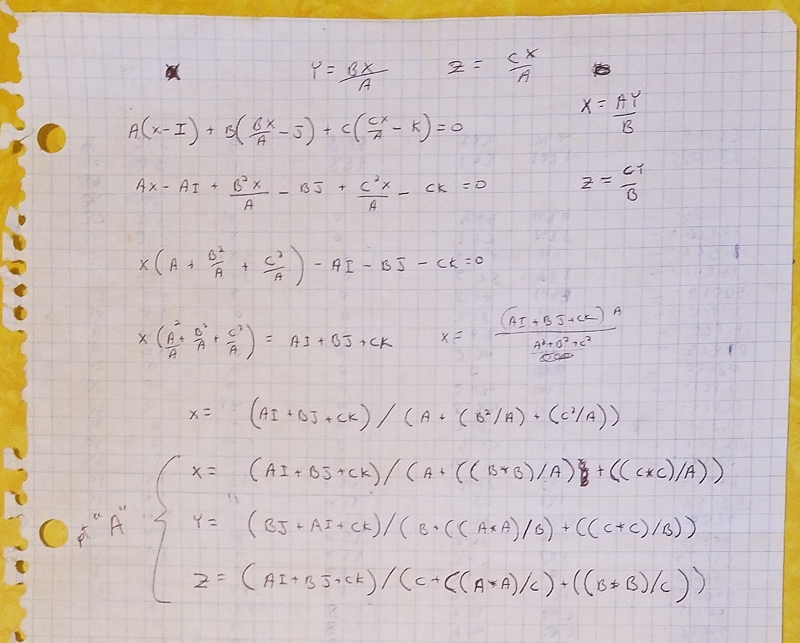 Y = BX/A Z = CX/A
X = AY/B
A(X-I) + B(BX/A - J) + C(CX/A - K) = 0
AX - AI + B²X/A - BJ + C²X/A - CK = 0
Z = CY/B
X(A + B²/A + C²/A) - AI - BJ - CK = 0
X(A²/A + B²/A + C²/A) = AI + BJ + CK X = (AI + BJ + CK)A / A²+B²+C²
X = (AI + BJ + CK) / (A + (B²/A) + (C²/A))
X = (AI + BJ + CK) / (A + ((B*B)/A) + ((C*C)/A))
pt "A" Y = (BJ + AI + CK) / (B + ((A*A)/B) + ((C*C)/B))
Z = (AI + BJ + CK) / (C + ((A*A)/C) + ((B*B)/C))